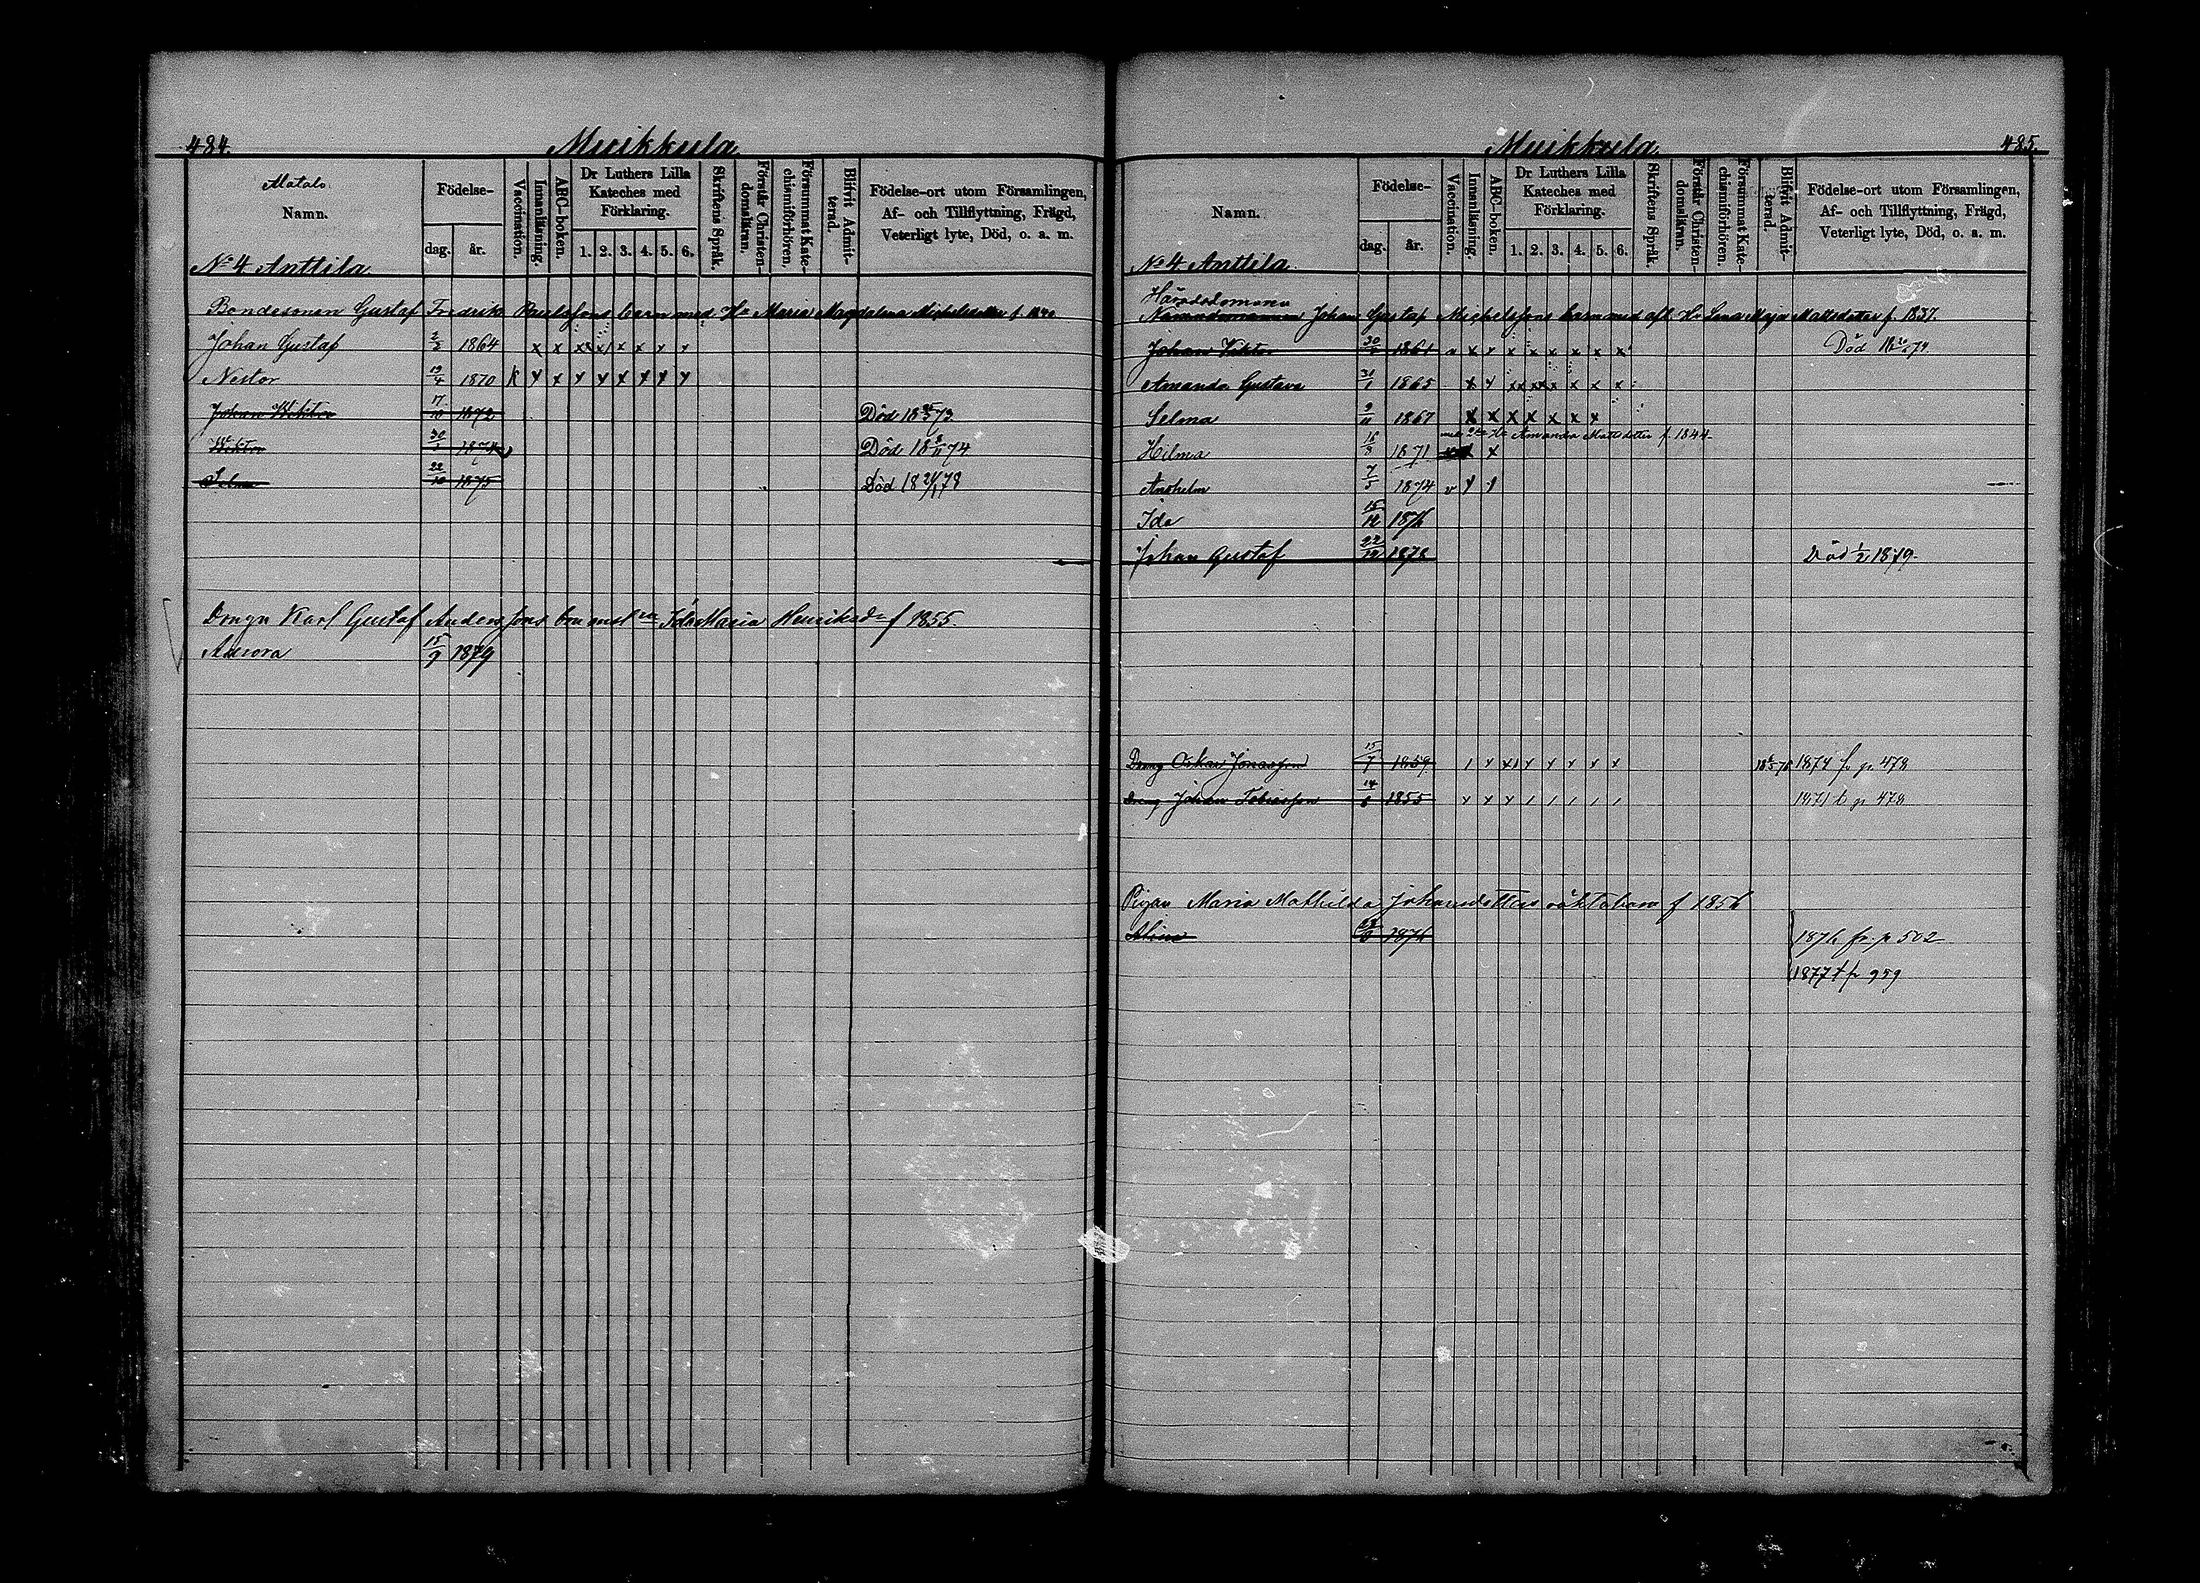 484.
Muikkula
Matalo
Namn.
Födelse-
dag.
år.
Vaccination.
Innanläsning.
ABC-boken.
Dr Luthers Lilla
Kateches med
Förklaring.
1. 2. 3. 4. 5. 6.
Skriftens Språk.
Förstår Christen-
domsläran.
Försummat Kate-
chismiförhören.
Blifvit Admit-
terad.
Födelse-ort utom Församlingen,
Af- och Tillflyttning, Frägd,
Veterligt lyte, Död, o. a. m.
No 4 Anttila
Bondesonen Gustaf Fredrik barn med Hu Maria Magdalena Michelsdotter f. 1840
Johan Gustaf 2/2 1864 x x x x x x x x
Nestor 19/4 1870 x x x x x x x x
Johan Wiktor 17/10 1872 Död 73
Wiktor 1874 Död 18 8/11 74
Selma 22/10 1875 Död 78
Drngn Karl Gustaf Anderssons Ida Maria Henriksdr f 1855.
Aurora 15/9 1879
Muikkula
485.
Namn.
Födelse-
dag.
år.
Vaccination.
Innanläsning.
ABC-boken.
Dr Luthers Lilla
Kateches med
Förklaring.
1. 2. 3. 4. 5. 6.
Skriftens Språk.
Förstår Christen-
domsläran.
Försummat Kate-
chismiförhören.
Blifvit Admit-
terad.
Födelse-ort utom Församlingen,
Af- och Tillflyttning, Frägd,
Veterligt lyte, Död, o. a. m.
No 4 Anttila
Häradsdomaren
Nämndemannen Johan Gustaf Michelssons barn med afl. Hu Lena Maja Mattsdotter f. 1837.
Johan Viktor 1861 x x x x x x x x Död
Amanda Gustava 31/1 1865 x x x x x x x x
Selma 9/11 1867 x x x x x x x
med 2dra Hu Amanda Mattsdotter f. 1844
Hilma 16/8 1871 x x
Anshelm 7/5 1874 v x x
Ida 15/12 1876
Johan Gustaf 22/12 1878 Död 1/2 1879.
Dreng Oskar Jonasson 15/7 1859 1874 fr. p. 478
Dreng Johan Tobiasson 1855 1871 478
Pigan Maria Mathilda Johansdotters oäkta barn f 1856
Alina 1876 1876 fr. p 502
1877 t p 959